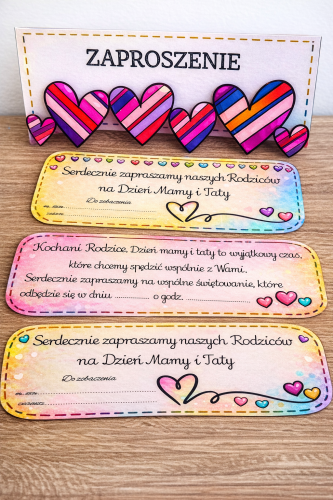 ZAPROSZENIE
Serdecznie zapraszamy naszych Rodziców
na Dzień Mamy i Taty
Do zobaczenia
Kochani Rodzice, Dzień mamy i taty to wyjątkowy czas,
które chcemy spędzić wspólnie z Wami.
Serdecznie zapraszamy na wspólne świętowanie, które
odbędzie się w dniu ................ o godz. ............
Serdecznie zapraszamy naszych Rodziców
na Dzień Mamy i Taty
Do zobaczenia